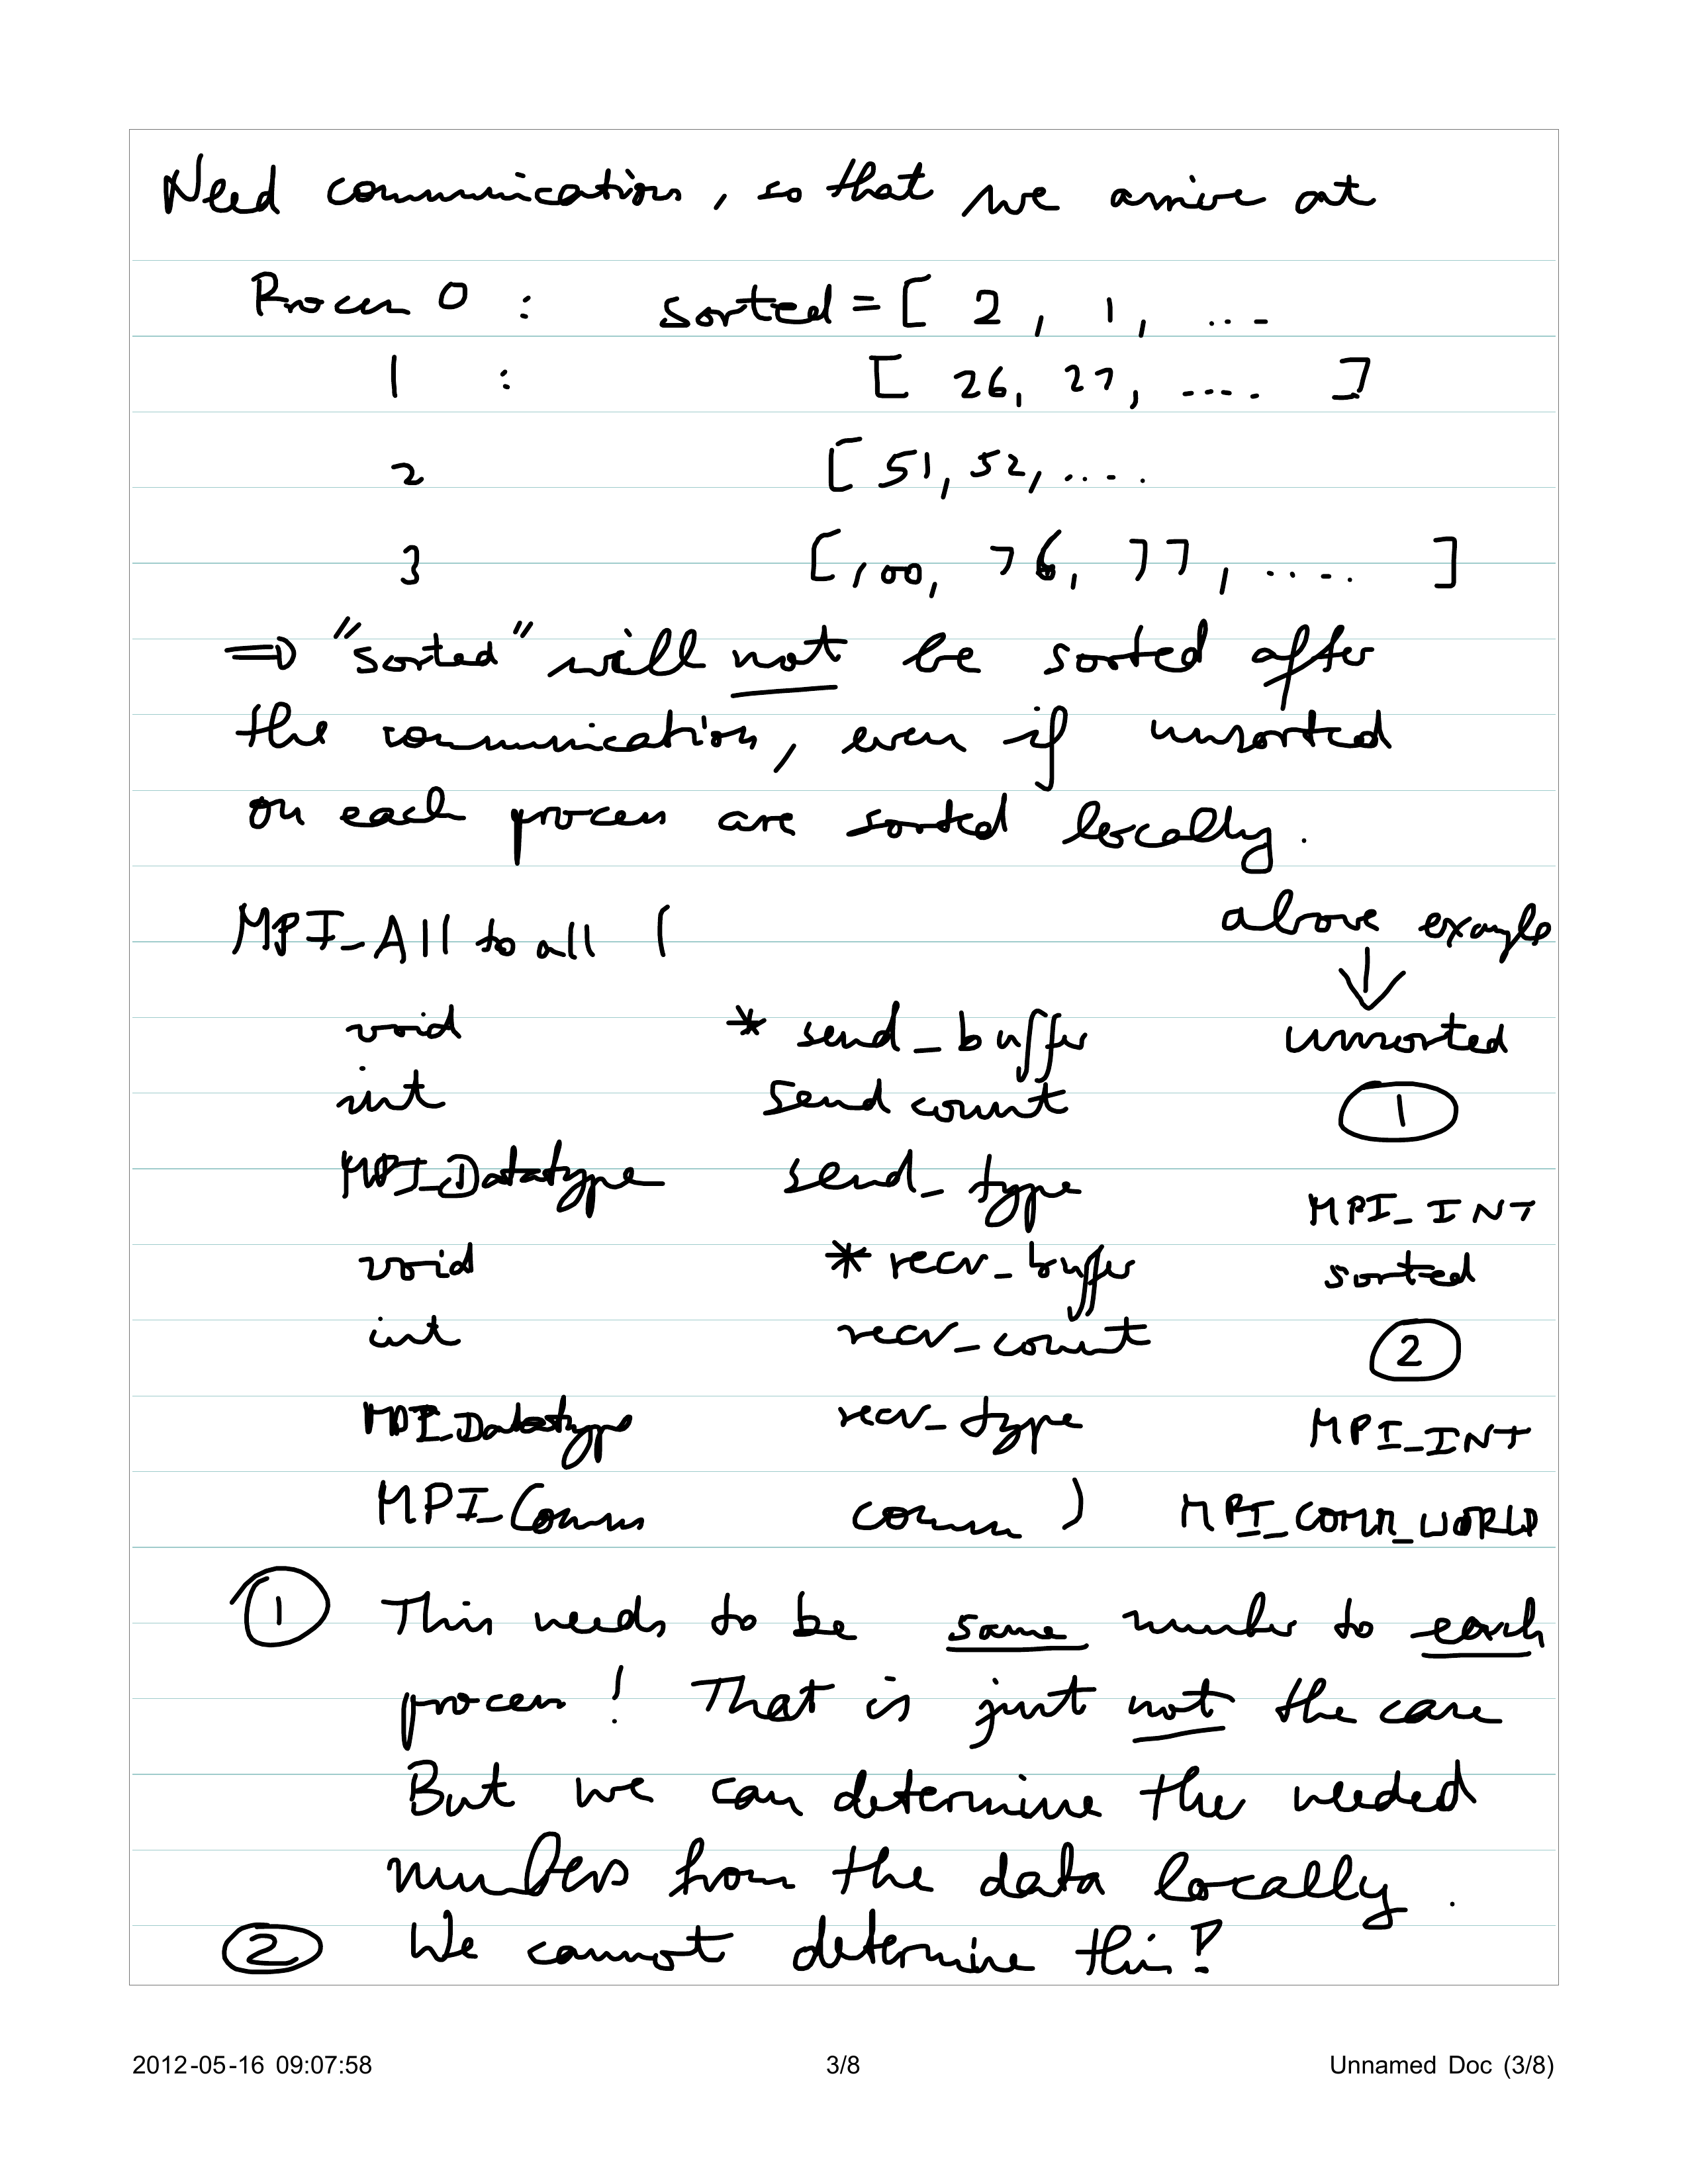 Need communication, so that we arrive at
Process 0 : sorted = [ 2, 1, ...
1 : [ 26, 27, .... ]
2 [ 51, 52, ....
3 [ 100, 76, 77, ..... ]
=> "sorted" will not be sorted after
the communication, even if unsorted
on each process are sorted locally.
MPI_All to all ( above example
↓
void * send_buffer unsorted
int send count ①
MPI_Datatype send_type MPI_INT
void * recv_buffer sorted
int recv_count ②
MPI_Datatype recv_type MPI_INT
MPI_Comm comm ) MPI_COMM_WORLD
① This needs to be same number to each
process! That is just not the case
But we can determine the needed
numbers from the data locally.
② We cannot determine this!
2012-05-16 09:07:58 3/8 Unnamed Doc (3/8)